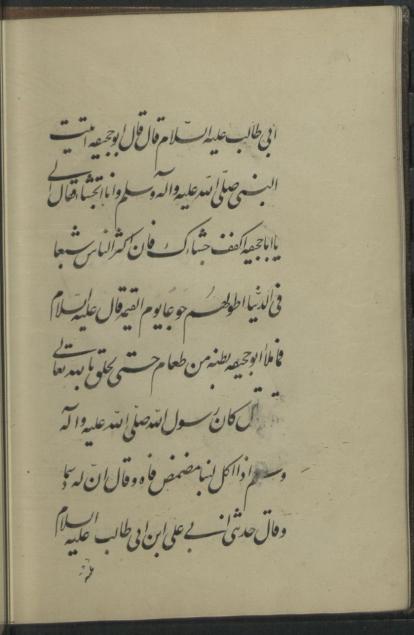 ابی طالب علیه السلام قال قال ابو جحیفه اتیت
النبی صلی الله علیه واله وسلم وانا اتجشأ فقال لی
یا ابا جحیفه اکفف جشاءک فان اکثر الناس شبعا
فی الدنیا اطولهم جوعا یوم القیمة قال علیه السلام
فما ملا ابو جحیفه بطنه من طعام حتی لحق بالله تعالی
قال کان رسول الله صلی الله علیه واله
وسلم اذا اکل لبنا مضمض فاه وقال ان له دسما
وقال حدثنی ابی علی ابن ابی طالب علیه السلام